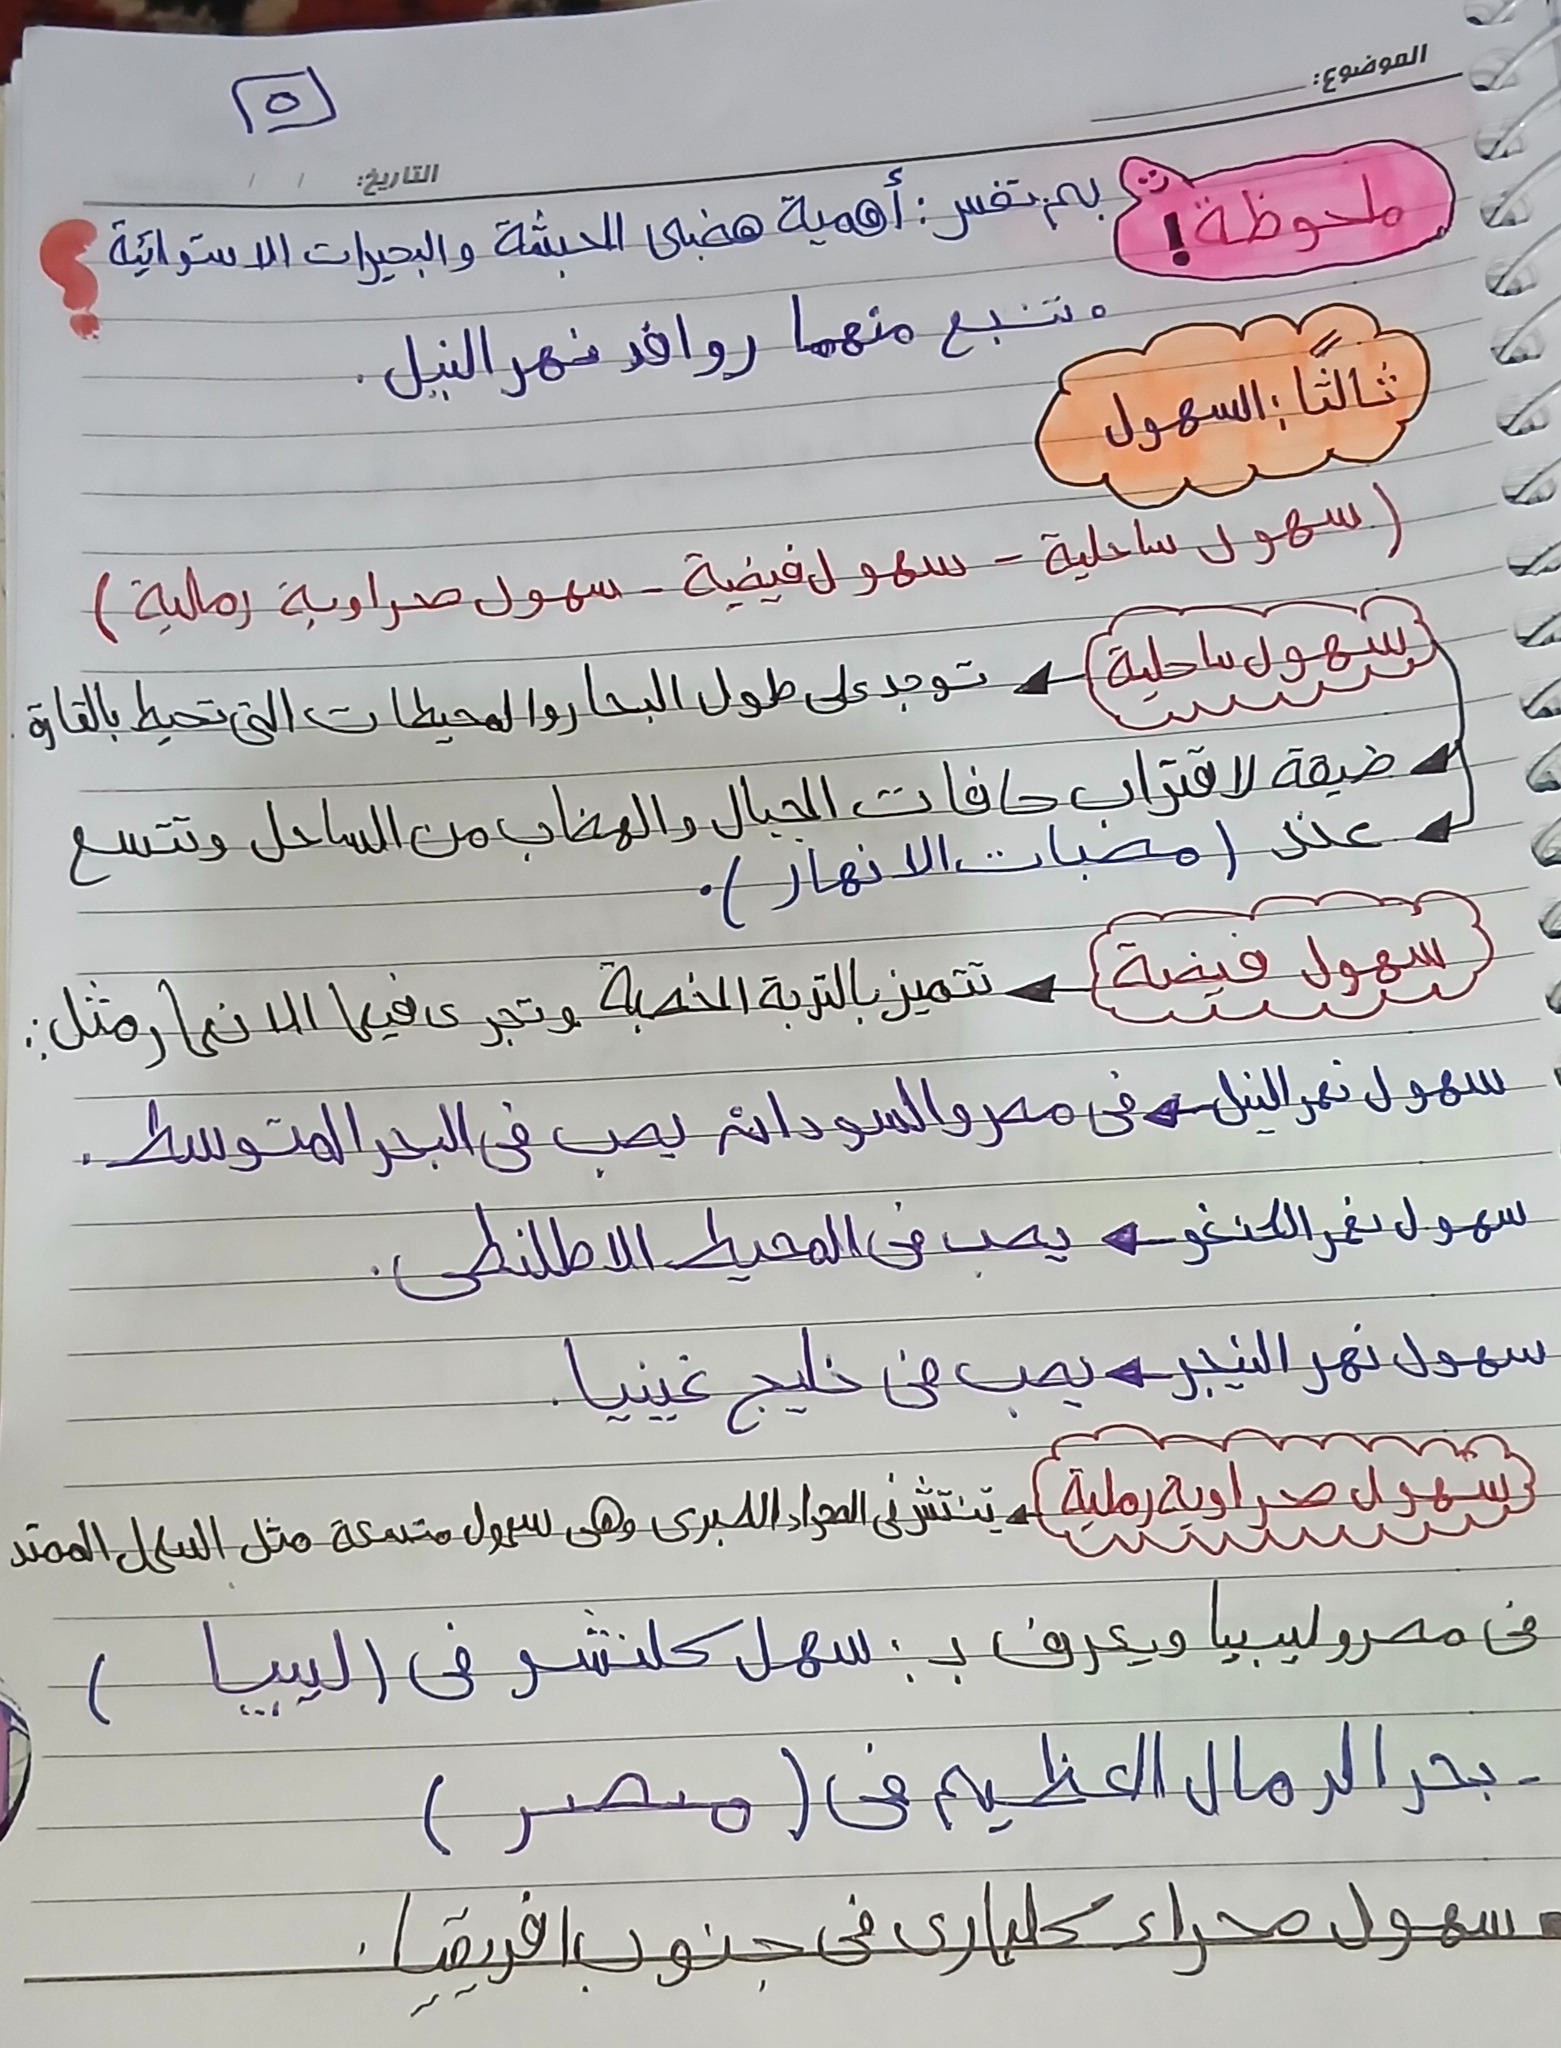 الموضوع:
٥
التاريخ: / /
ملحوظة! بم تفسر: أهمية هضبتى الحبشة والبحيرات الاستوائية ؟
تنبع منهما روافد نهر النيل.
ثالثًا: السهول
(سهول ساحلية - سهول فيضية - سهول صحراوية رملية)
سهول ساحلية توجد على طول البحار والمحيطات التى تحيط بالقارة.
ضيقة لاقتراب حافات الجبال والهضاب من الساحل وتتسع
عند (مصبات الانهار).
سهول فيضة تتميز بالتربة الخصبة وتجرى فيها الانهار مثل:
سهول نهر النيل فى مصر والسودان يصب فى البحر المتوسط.
سهول نهر الكنغو يصب فى المحيط الاطلنطى.
سهول نهر النيجر يصب فى خليج غينيا.
سهول صحراوية رملية تنتشر فى الصحراء الكبرى وهى سهول متسعة مثل السهل الممتد
فى مصر وليبيا ويعرف بـ: سهل كلنشو فى (ليبيا)
- بحر الرمال العظيم فى (مصر)
سهول صحراء كلهارى فى جنوب افريقيا.